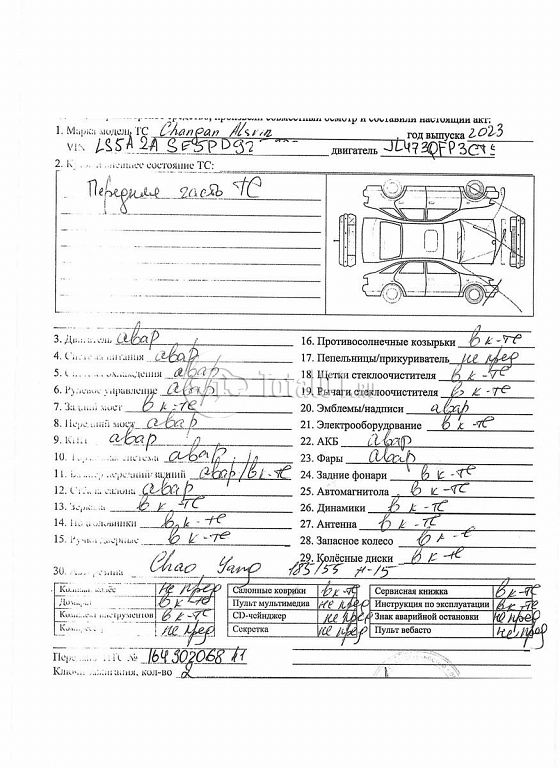 совместный осмотр и составили настоящий акт:
1. Марка модель ТС Changan Alsvin год выпуска 2023
VIN LS5A2A SE5PD92 двигатель JL473QFP3
внешнее состояние ТС:
Передняя часть ТС
3. Двигатель авар
4. Система питания авар
5. Система охлаждения авар
6. Рулевое управление авар
7. Задний мост в к-те
8. Передний мост авар
9. КПП авар
10. система авар
11. Бампер передний/задний авар/в к-те
12. Стёкла салона авар
13. Зеркала в к-те
14. в к-те
15. Ручки дверные в к-те
16. Противосолнечные козырьки в к-те
17. Пепельницы/прикуриватель не пред
18. Щетки стеклоочистителя в к-те
19. Рычаги стеклоочистителя в к-те
20. Эмблемы/надписи авар
21. Электрооборудование в к-те
22. АКБ авар
23. Фары авар
24. Задние фонари в к-те
25. Автомагнитола в к-те
26. Динамики в к-те
27. Антенна в к-те
28. Запасное колесо в к-те
29. Колёсные диски в к-те
30. Chao Yang 185/55 R-15
не пред Салонные коврики в к-те Сервисная книжка в к-те
Домкрат в к-те Пульт мультимедиа не пред Инструкция по эксплуатации в к-те
инструментов в к-те CD-чейнджер не пред Знак аварийной остановки не пред
не пред Секретка не пред Пульт вебасто не пред
ПТС № 164302068
Ключи зажигания, кол-во 2